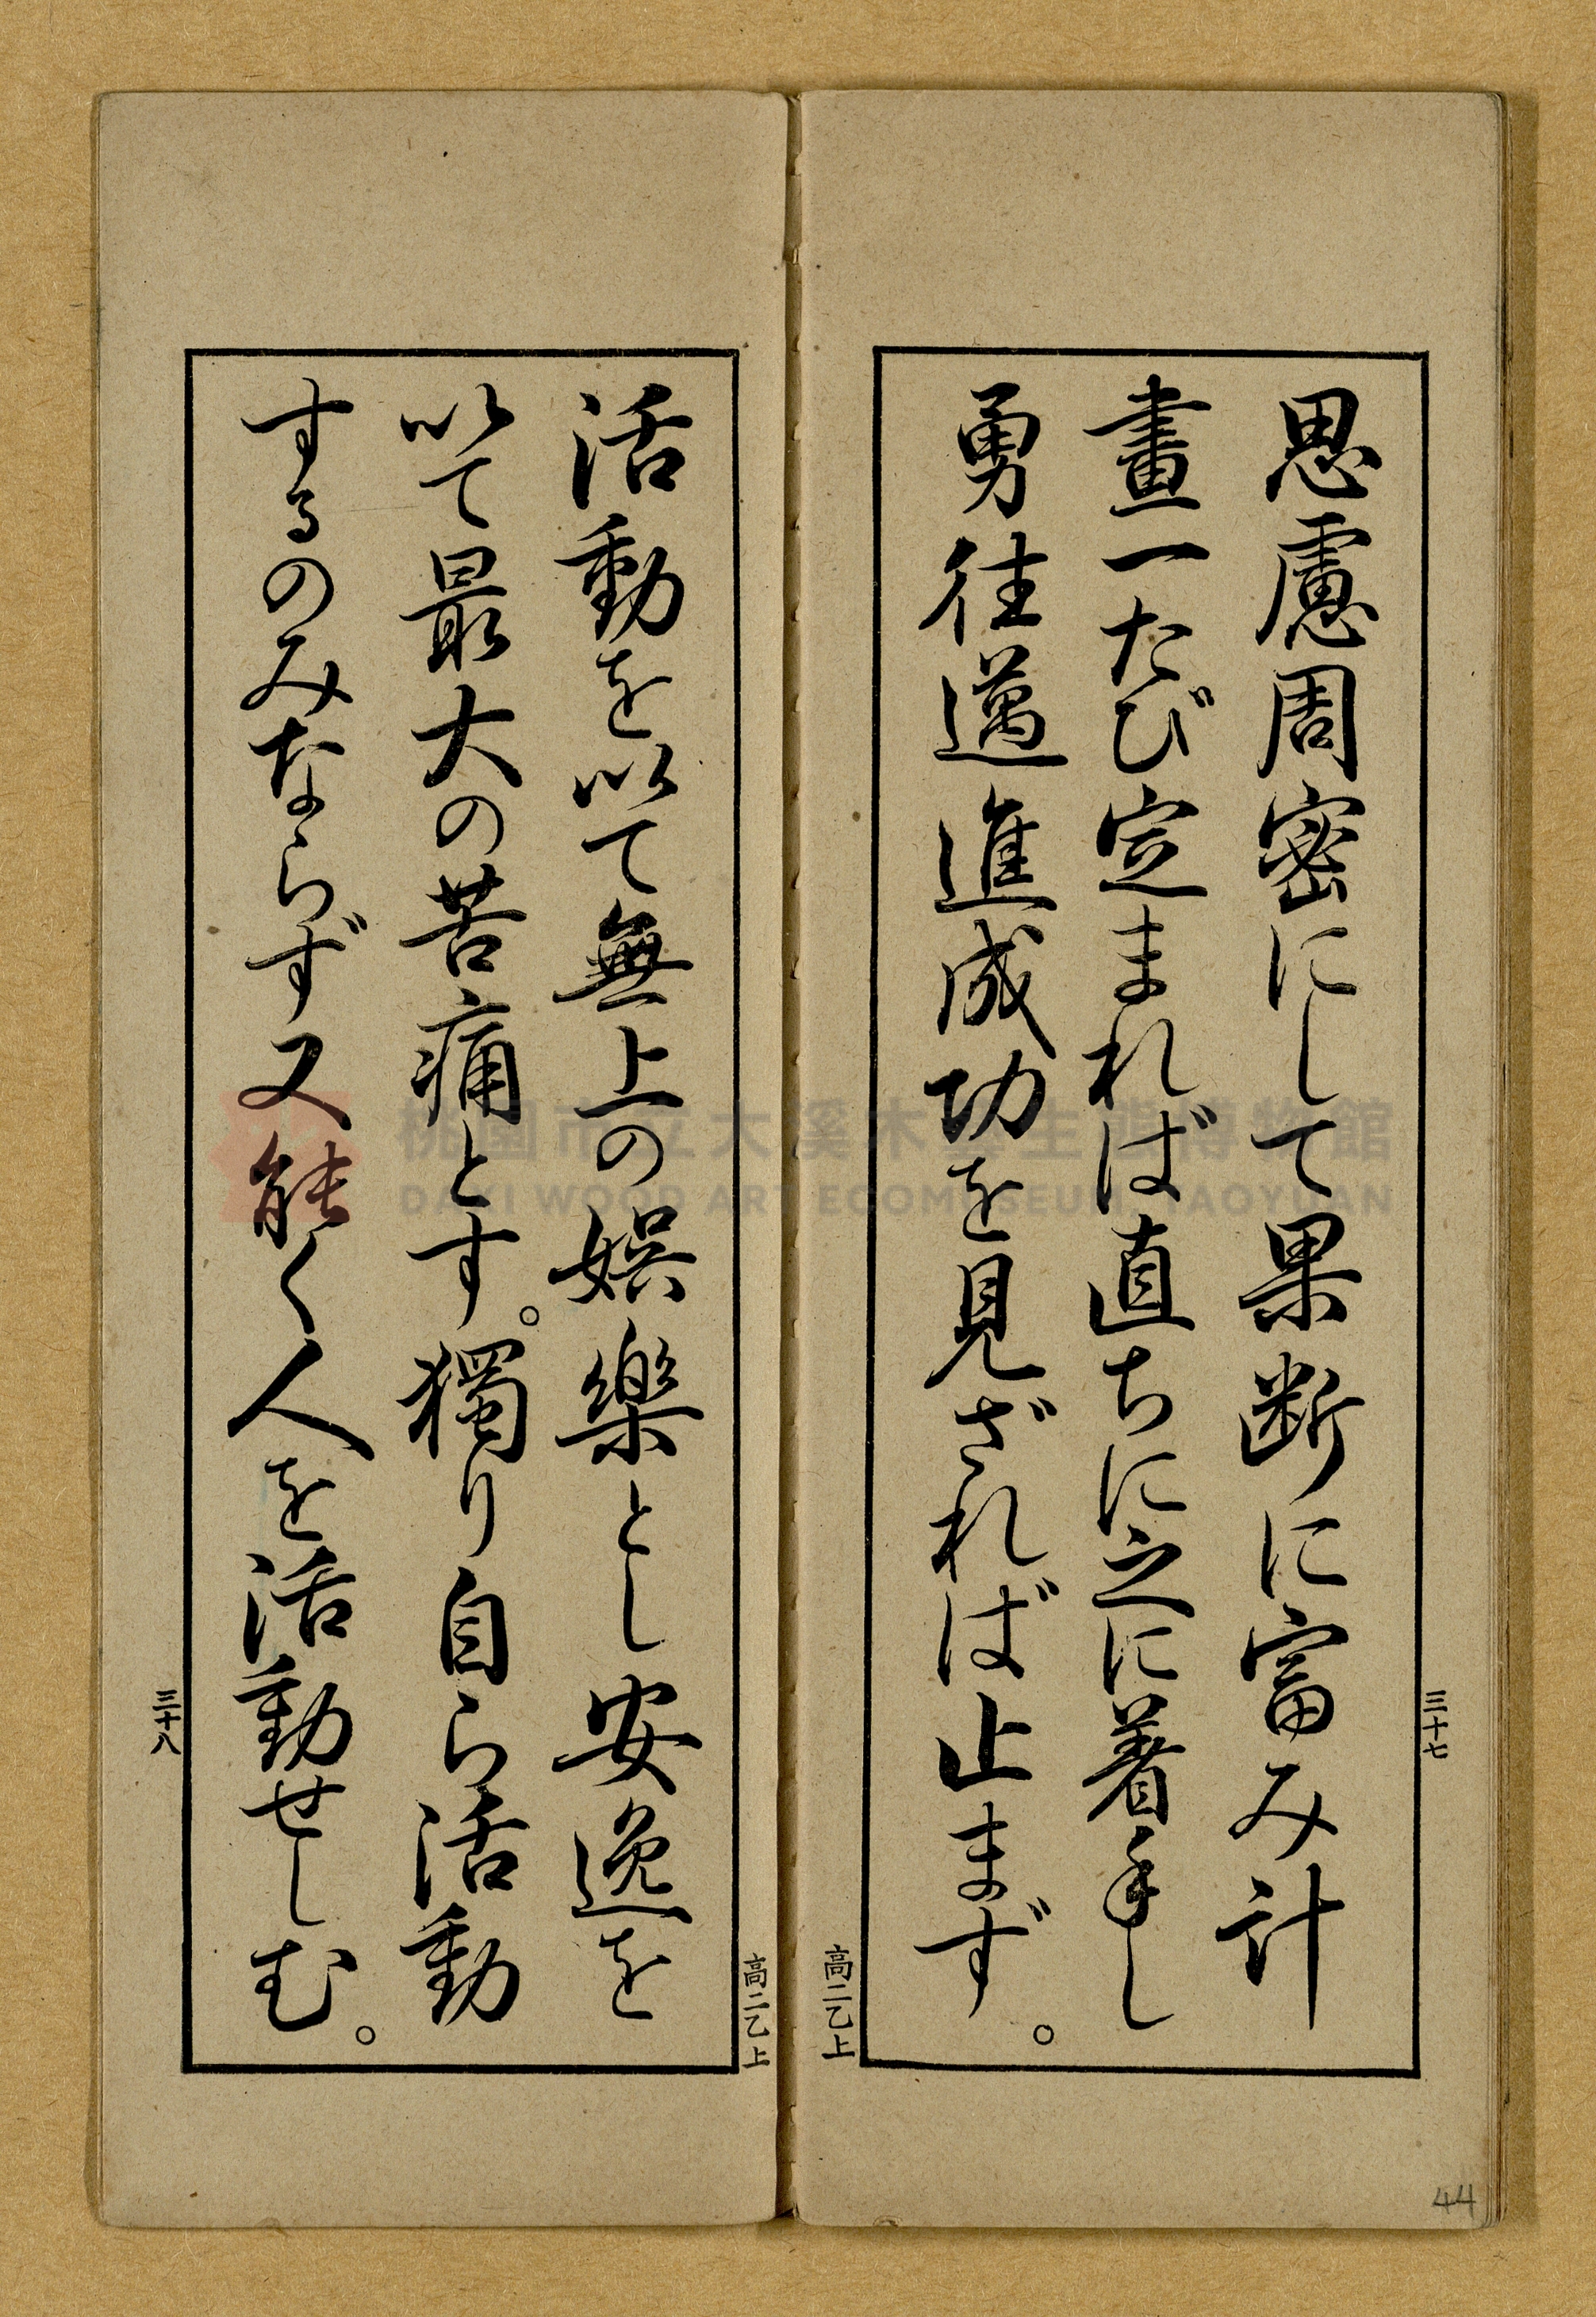 思慮周密にして果断に富み計
畫一たび定まれば直ちに之に着手し
勇往邁進成功を見ざれば止まず。
三十七
高二乙上
活動を以て無上の娯樂とし安逸を
以て最大の苦痛とす。獨り自ら活動
するのみならず又能く人を活動せしむ。
三十八
高二乙上
桃園市立大溪木藝生態博物館
DAXI WOOD ART ECOMUSEUM, TAOYUAN
44